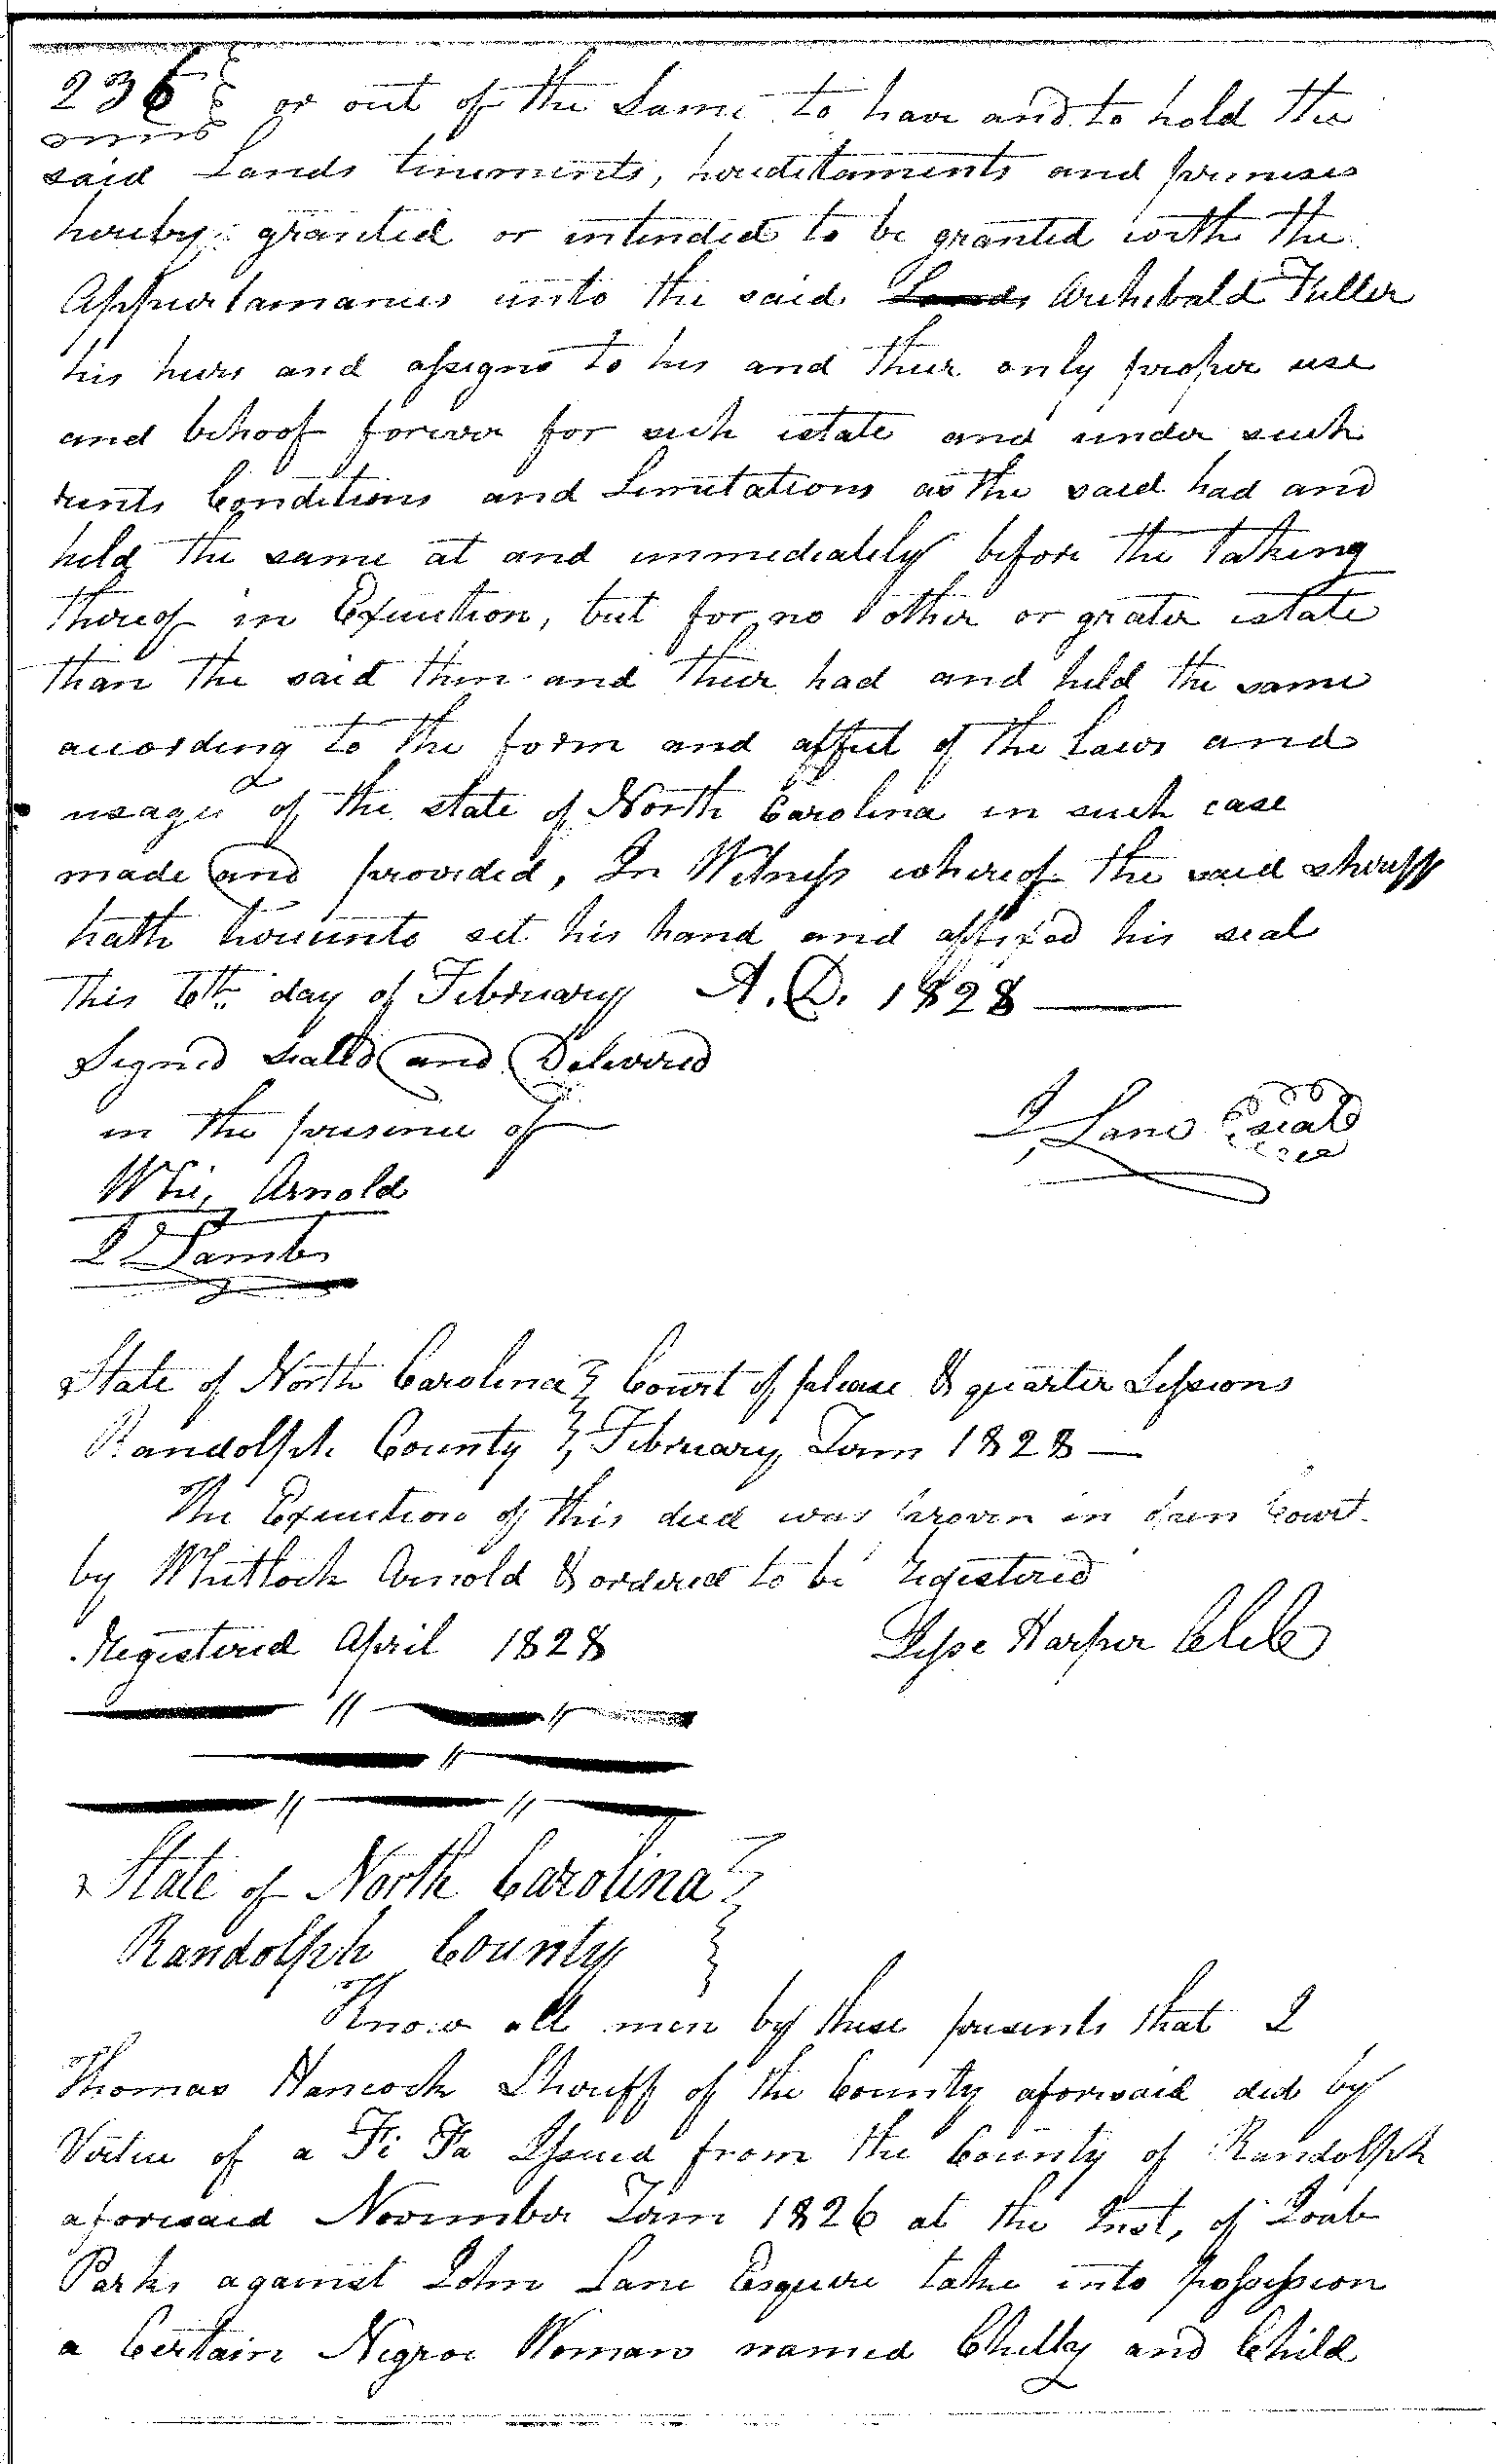 236 or out of the Same to have and to hold the
said Lands tinements, hereditaments and primises
hereby granted or intended to be granted with the
Appurtamances unto the said Lands Archibald Fuller
his heirs and assigns to his and their only proper use
and behoof forever for such estate and under such
rents Conditions and Limitations as the said had and
held the same at and immediately before the taking
thereof in Execution, but for no other or grater estate
than the said then and their had and held the same
according to the form and affect of the Laws and
usages of the state of North Carolina in such case
made and provided, In Witness whereof the said sheriff
hath hereunto set his hand and affixed his seal
This 6th day of February A. D. 1828
Signed Sealed and Delivered
in the presence of
I Lane seal
Whi, Arnold
I Lamb
State of North Carolina Court of please & quarter Sessions
Randolph County February Term 1828
The Execution of this deed was proven in open Court
by Whitlock Arnold & ordered to be registered
Registered April 1828 Jesse Harper Clk
State of North Carolina
Randolph County
Know all men by these presents that I
Thomas Hancock Sheriff of the County aforesaid did by
Virtue of a Fi Fa Issued from the County of Randolph
aforesaid November Term 1826 at the Inst, of Joab
Parks against John Lane Esquire take into possession
a Certain Negroe Woman named Chelly and Child